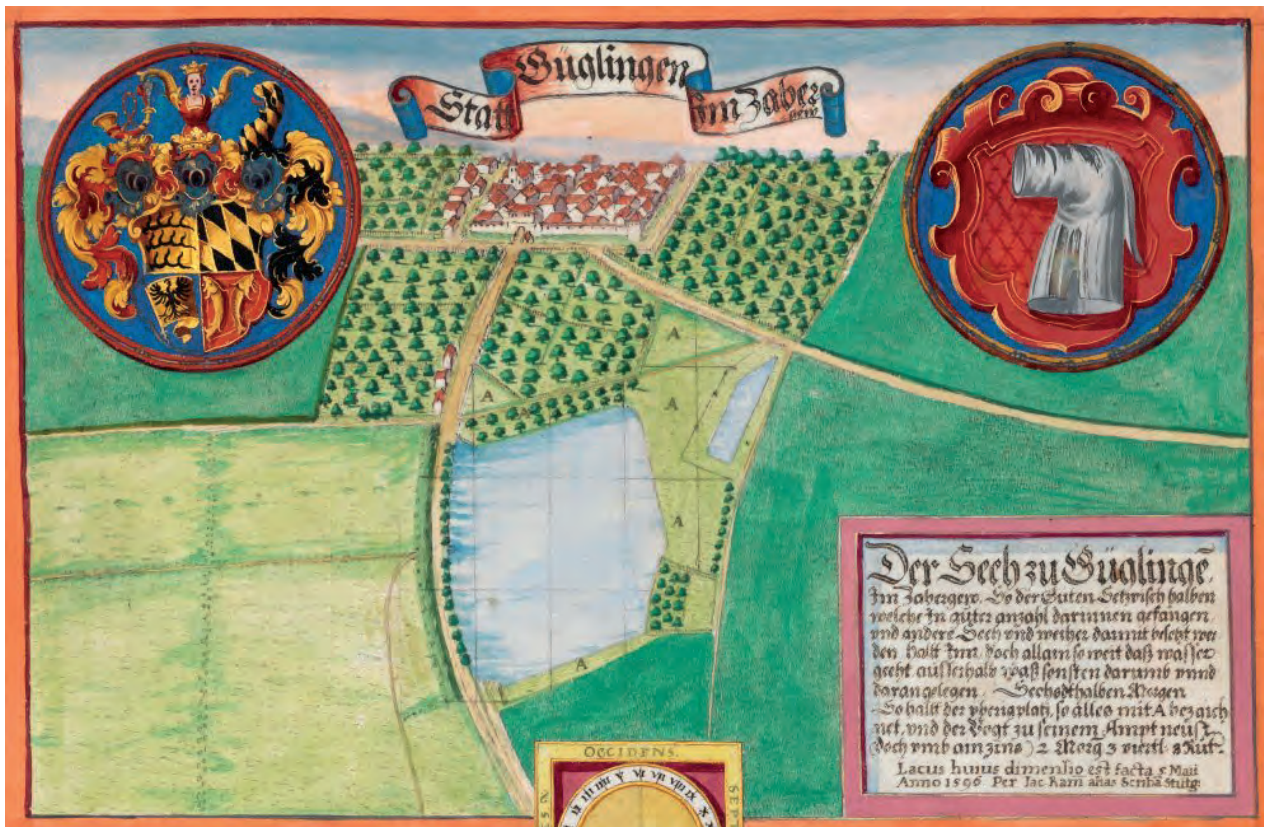 Statt Güglingen Im Zaber
gew
A
A
A
A
A
A
Der Seeh zu Güglingē.
Im Zabergew. So der Guten Setzvisch halben
welche In guter anzahl darinnen gefangen
vnd andere Seeh vnd weiher damit besetzt wer
den. hallt Inn. doch allain so weit daß wasser
geeht ausserhalb waß sonsten darumb vnnd
darangelegen. Sechsdthalben Morgen
So hallt der vberig platz, so alles mit A bezaich
net, vnd der Vogt zu seinem Ampt neüst
doch vmb ain zins) 2 Morg 3 viertl: 8 Rut.
Lacus huius dimensio est facta 5 Maii
Anno 1596 Per Jac Ram alias Scriba Stutg:
OCCIDENS.
SEP
V VI VII VIII IX X